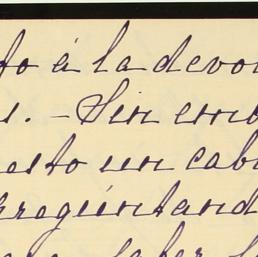 á la devo
. - Sin em
esto un cab
pregúntand
saber